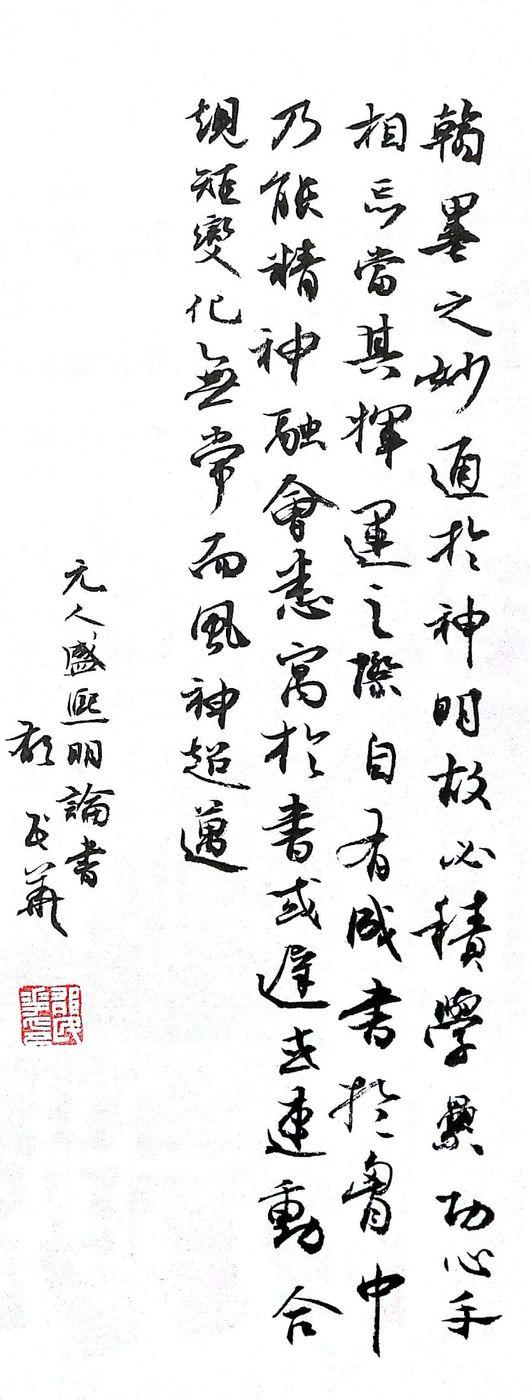 翰墨之妙通於神明故必積學累功心手
相忘當其揮運之際自有成書於胷中
乃能精神融會悉寓於書或遲或速動合
規矩變化無常而風神超邁
元人盛熙明論書
民華